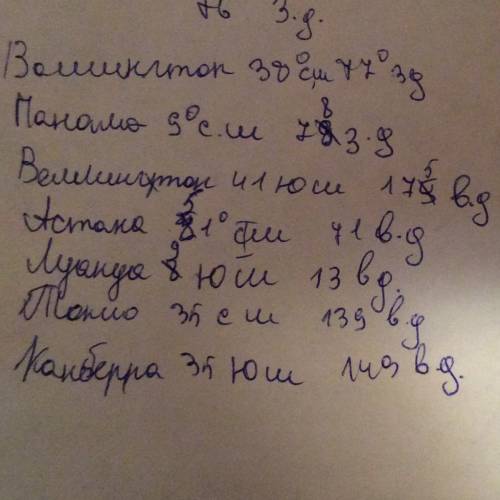 76 з.д.
Вашингтон 38° сш 77° зд
Панама 9° с.ш 78 з.д
Веллингтон 41 юш 175 в.д
Астана 51° сш 71 в.д
Луанда 9 юш 13 вд.
Токио 35 с ш 139 в.д
Канберра 35 юш 149 в.д.